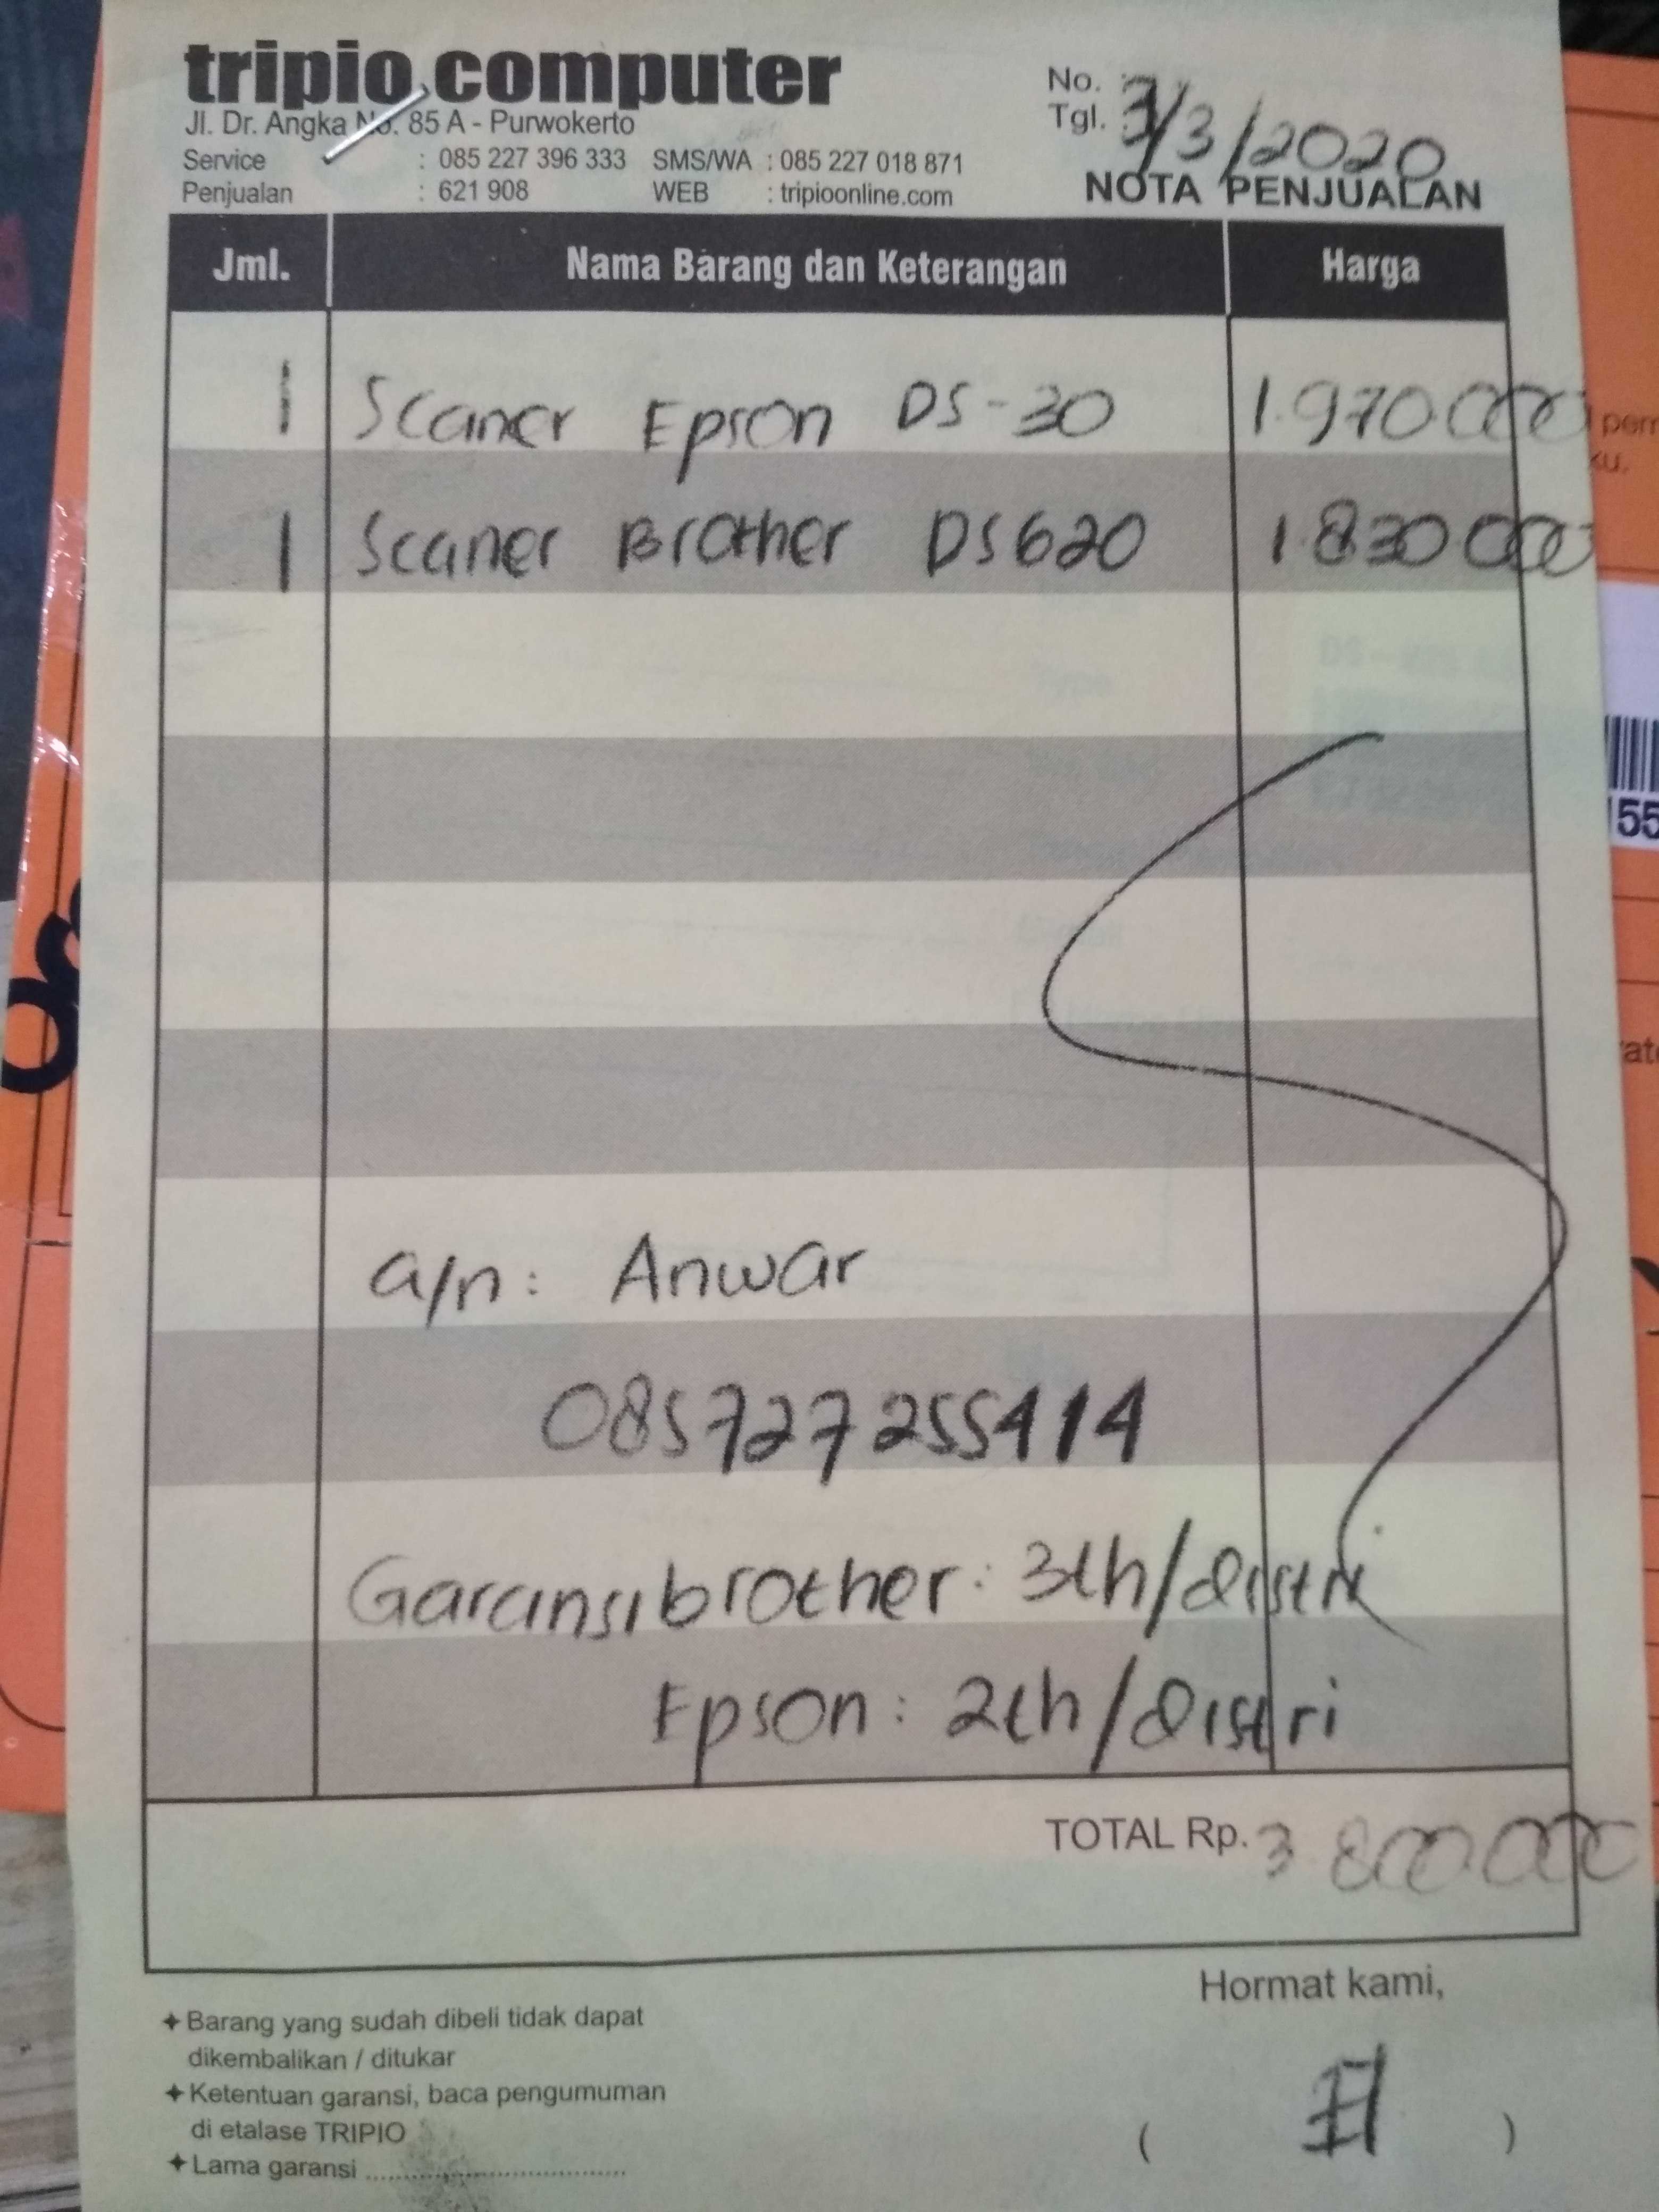 tripio computer
Jl. Dr. Angka No. 85 A - Purwokerto
Service : 085 227 396 333 SMS/WA : 085 227 018 871
Penjualan : 621 908 WEB : tripioonline.com
No.
Tgl. 3/3/2020
NOTA PENJUALAN
Jml. Nama Barang dan Keterangan Harga
1 Scaner Epson DS-30 1.970.000
1 Scaner Brother DS620 1.830.000
a/n: Anwar
085727255414
Garansi brother: 3th/distri
Epson: 2th/distri
TOTAL Rp. 3.800.000
Hormat kami,
✦ Barang yang sudah dibeli tidak dapat
dikembalikan / ditukar
✦ Ketentuan garansi, baca pengumuman
di etalase TRIPIO
✦ Lama garansi ........................................
( )
55